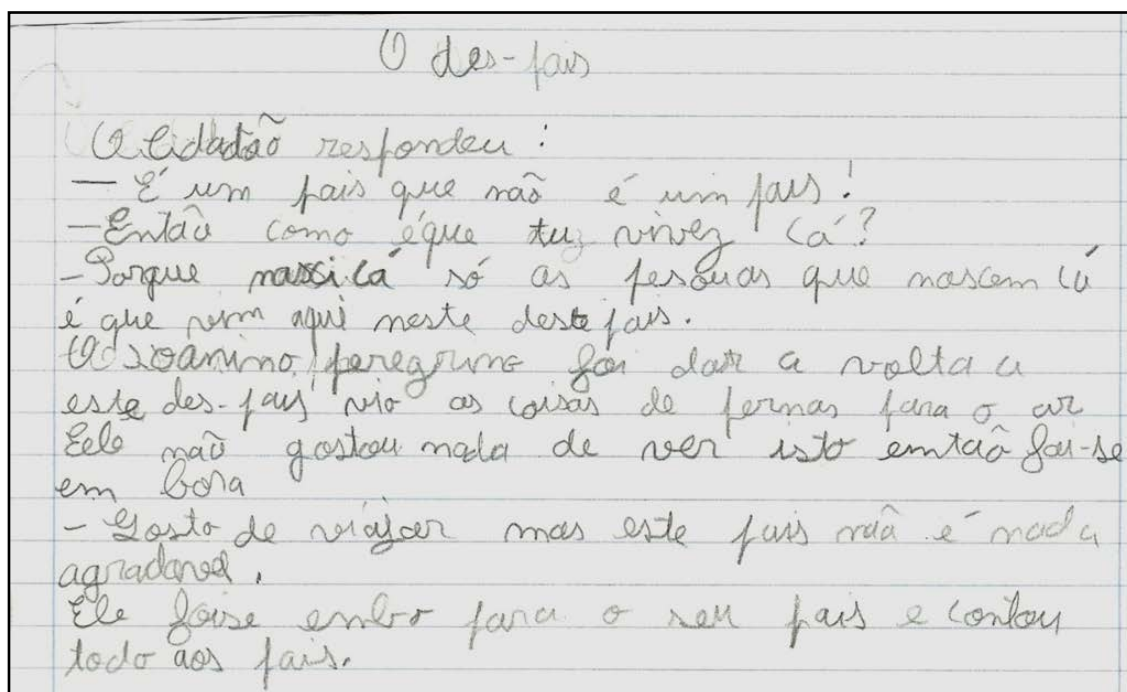 O des-pais
O Cidadão respondeu:
— É um pais que não é um pais!
— Então como éque tu vivez cá?
- Porque nasci cá só as pesouas que nascem cá
é que vem aqui neste deste pais.
O Joanino, peregrino foi dar a volta a
este des-pais vio as coisas de pernas para o ar
Eele não gostou nada de ver isto emtão foi-se
em bora
- Gosto de viajar mas este pais não é nada
agradavel.
Ele foise embro para o seu pais e contou
todo aos pais.